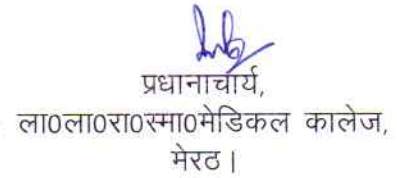 प्रधानाचार्य,
ला0ला0रा0स्मा0मेडिकल कालेज,
मेरठ।